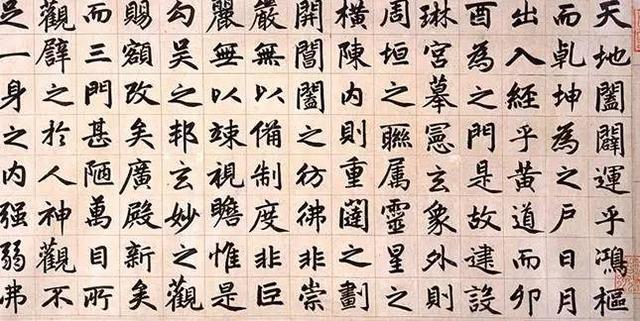 天地闔闢運乎鴻樞
而乹坤為之戶日月
出入經乎黃道而卯
酉為之門是故建設
琳宮摹憲玄象外則
周垣之聯属靈星之
橫陳內則重闥之劃
開閶闔之彷彿非崇
嚴無以俻制度非巨
麗無以竦視瞻惟是
勾吴之邦玄妙之觀
賜額改矣廣殿新矣
而三門甚陋萬目所
觀之於人神觀不
足一身之内强弱弗